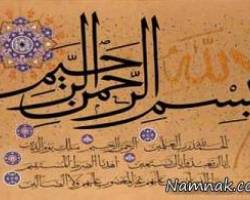 الله
بِسْمِ الرَّحْمنِ الرَّحِيمِ
الحمد لله رب العالمين الرحمن الرحيم مالك يوم الدين
اياك نعبد واياك نستعين اهدنا الصراط المستقيم
صراط الذين انعمت عليهم غير المغضوب عليهم ولا الضالين
Namnak.com